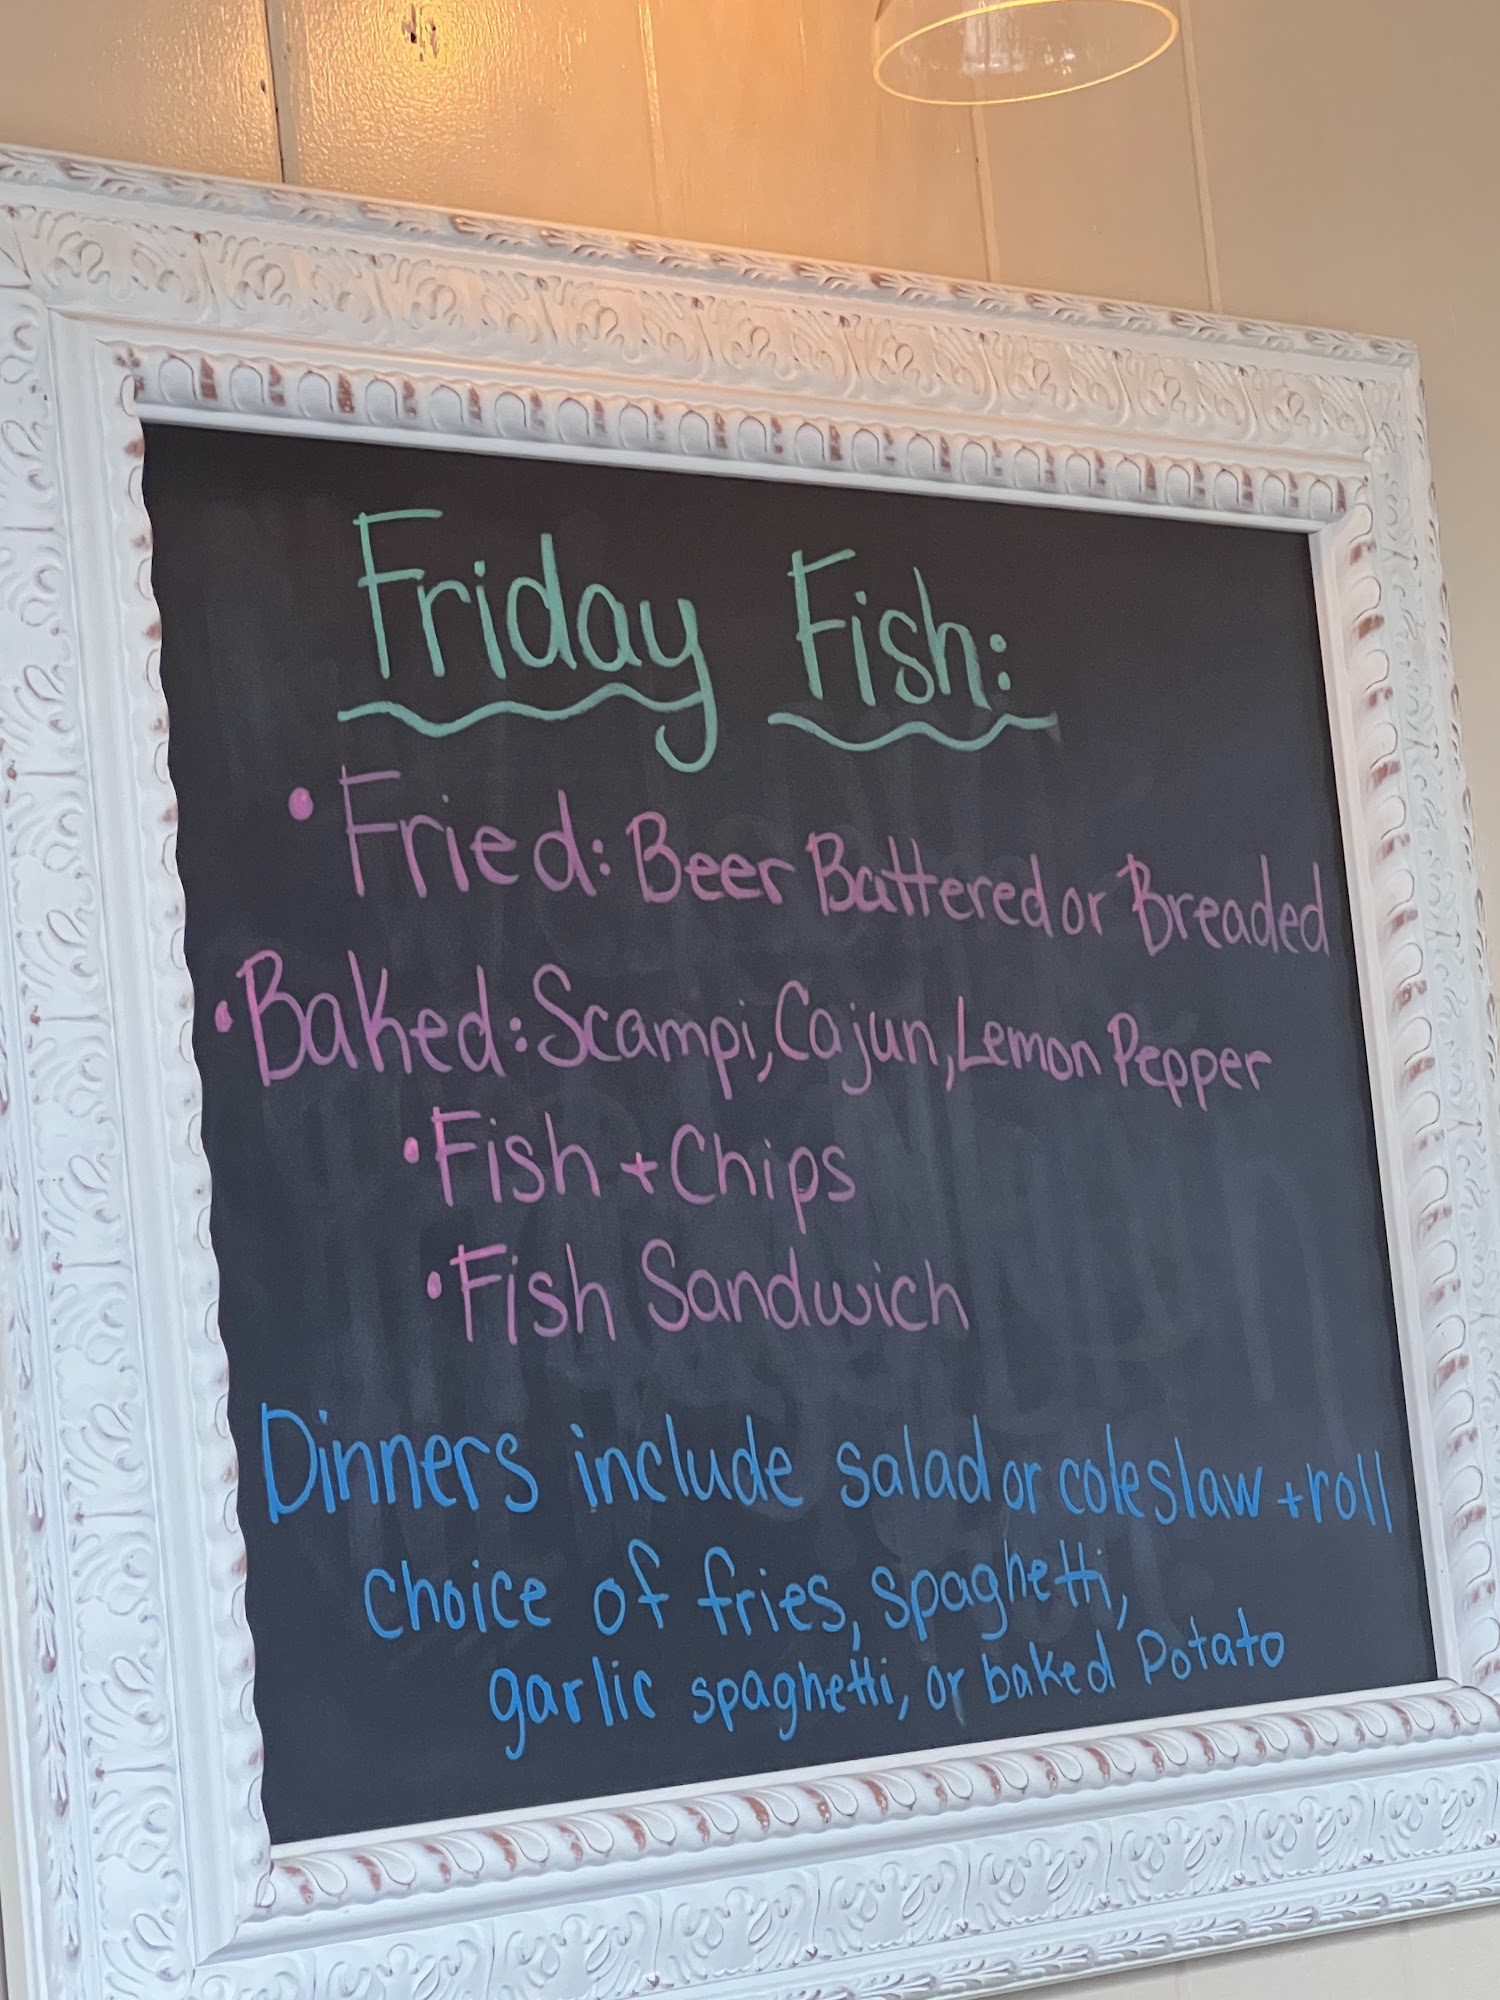 Friday Fish:
• Fried: Beer Battered or Breaded
• Baked: Scampi, Cajun, Lemon Pepper
• Fish + Chips
• Fish Sandwich
Dinners include salad or coleslaw + roll
choice of fries, spaghetti,
garlic spaghetti, or baked potato